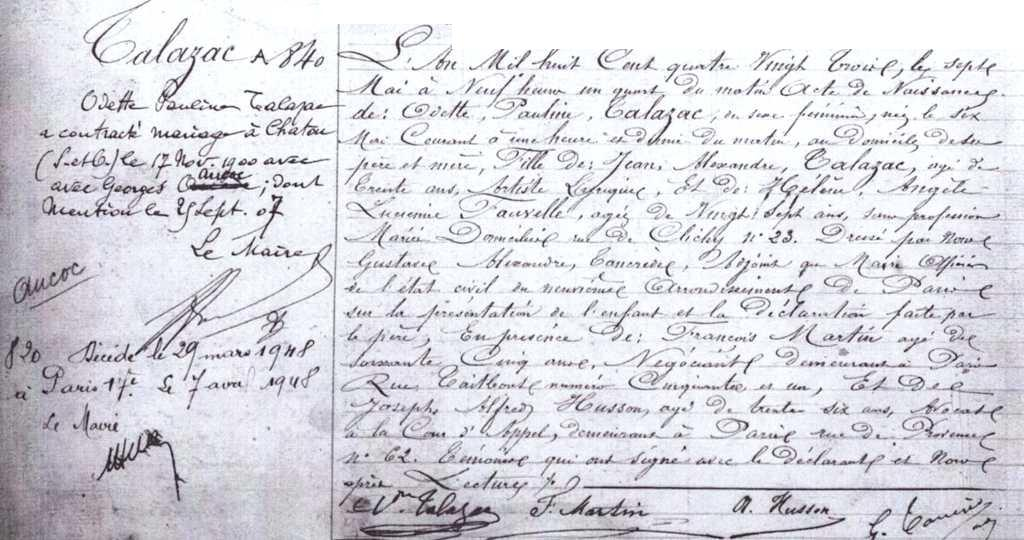 Talazac A 840
Odette Pauline Talazac
a contracté mariage à Chatou
(S.et.O.) le 17 Nov. 1900 avec
avec Georges Aucoc ; dont
Mention le 25 Sept. 07
Le Maire
Aucoc
820 Décédée le 29 mars 1948
à Paris 17e. Le 7 avril 1948
Le Maire
L'An Mil huit Cent quatre Vingt Trois, le sept
Mai à Neuf heures un quart du matin Acte de Naissance
de: Odette, Pauline, Talazac, du sexe féminin, née le six
Mai Courant à une heure et demie du matin, au domicile de ses
père et mère, Fille de: Jean, Alexandre, Talazac, agé de
Trente ans, Artiste Lyrique, Et de: Hélène, Angèle
Lucienne Fauvelle, agée de Vingt Sept ans, sans profession
Mariés Domiciliés rue de Clichy n° 23. Dressé par Nous
Gustave Alexandre, Tancrède, Adjoint au Maire Officier
de l'état civil du neuvième Arrondissement de Paris
sur la présentation de l'enfant et la déclaration faite par
le père, En présence de: François Martin agé de
soixante Cinq ans, Négociant demeurant à Paris
Rue Taitbout numéro Cinquante et un, Et de
Joseph, Alfred, Husson, agé de trente six ans, Avocat
à la Cour d'Appel, demeurant à Paris rue de Provence
n° 62. Témoins qui ont signé avec le déclarant et Nous
après Lecture
Talazac F. Martin A. Husson G.